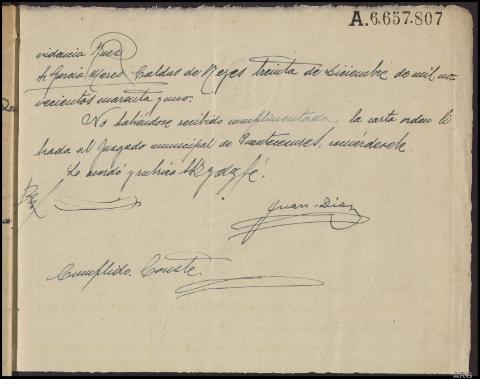 A.6.657.807
videncia Juez
Sr Garcia Merco Caldas de Reyes treinta de Diciembre de mil no
vecientos cuarenta y uno.
No habiéndose recibido cumplimentada la carta orden li
brada al Juzgado municipal de recuérdesele.
Lo acordó y rubrica
Juan Diaz
Cumplido. Conste.